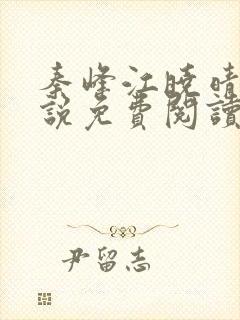 秦峰江曉晴
說免費閱讀
尹留志